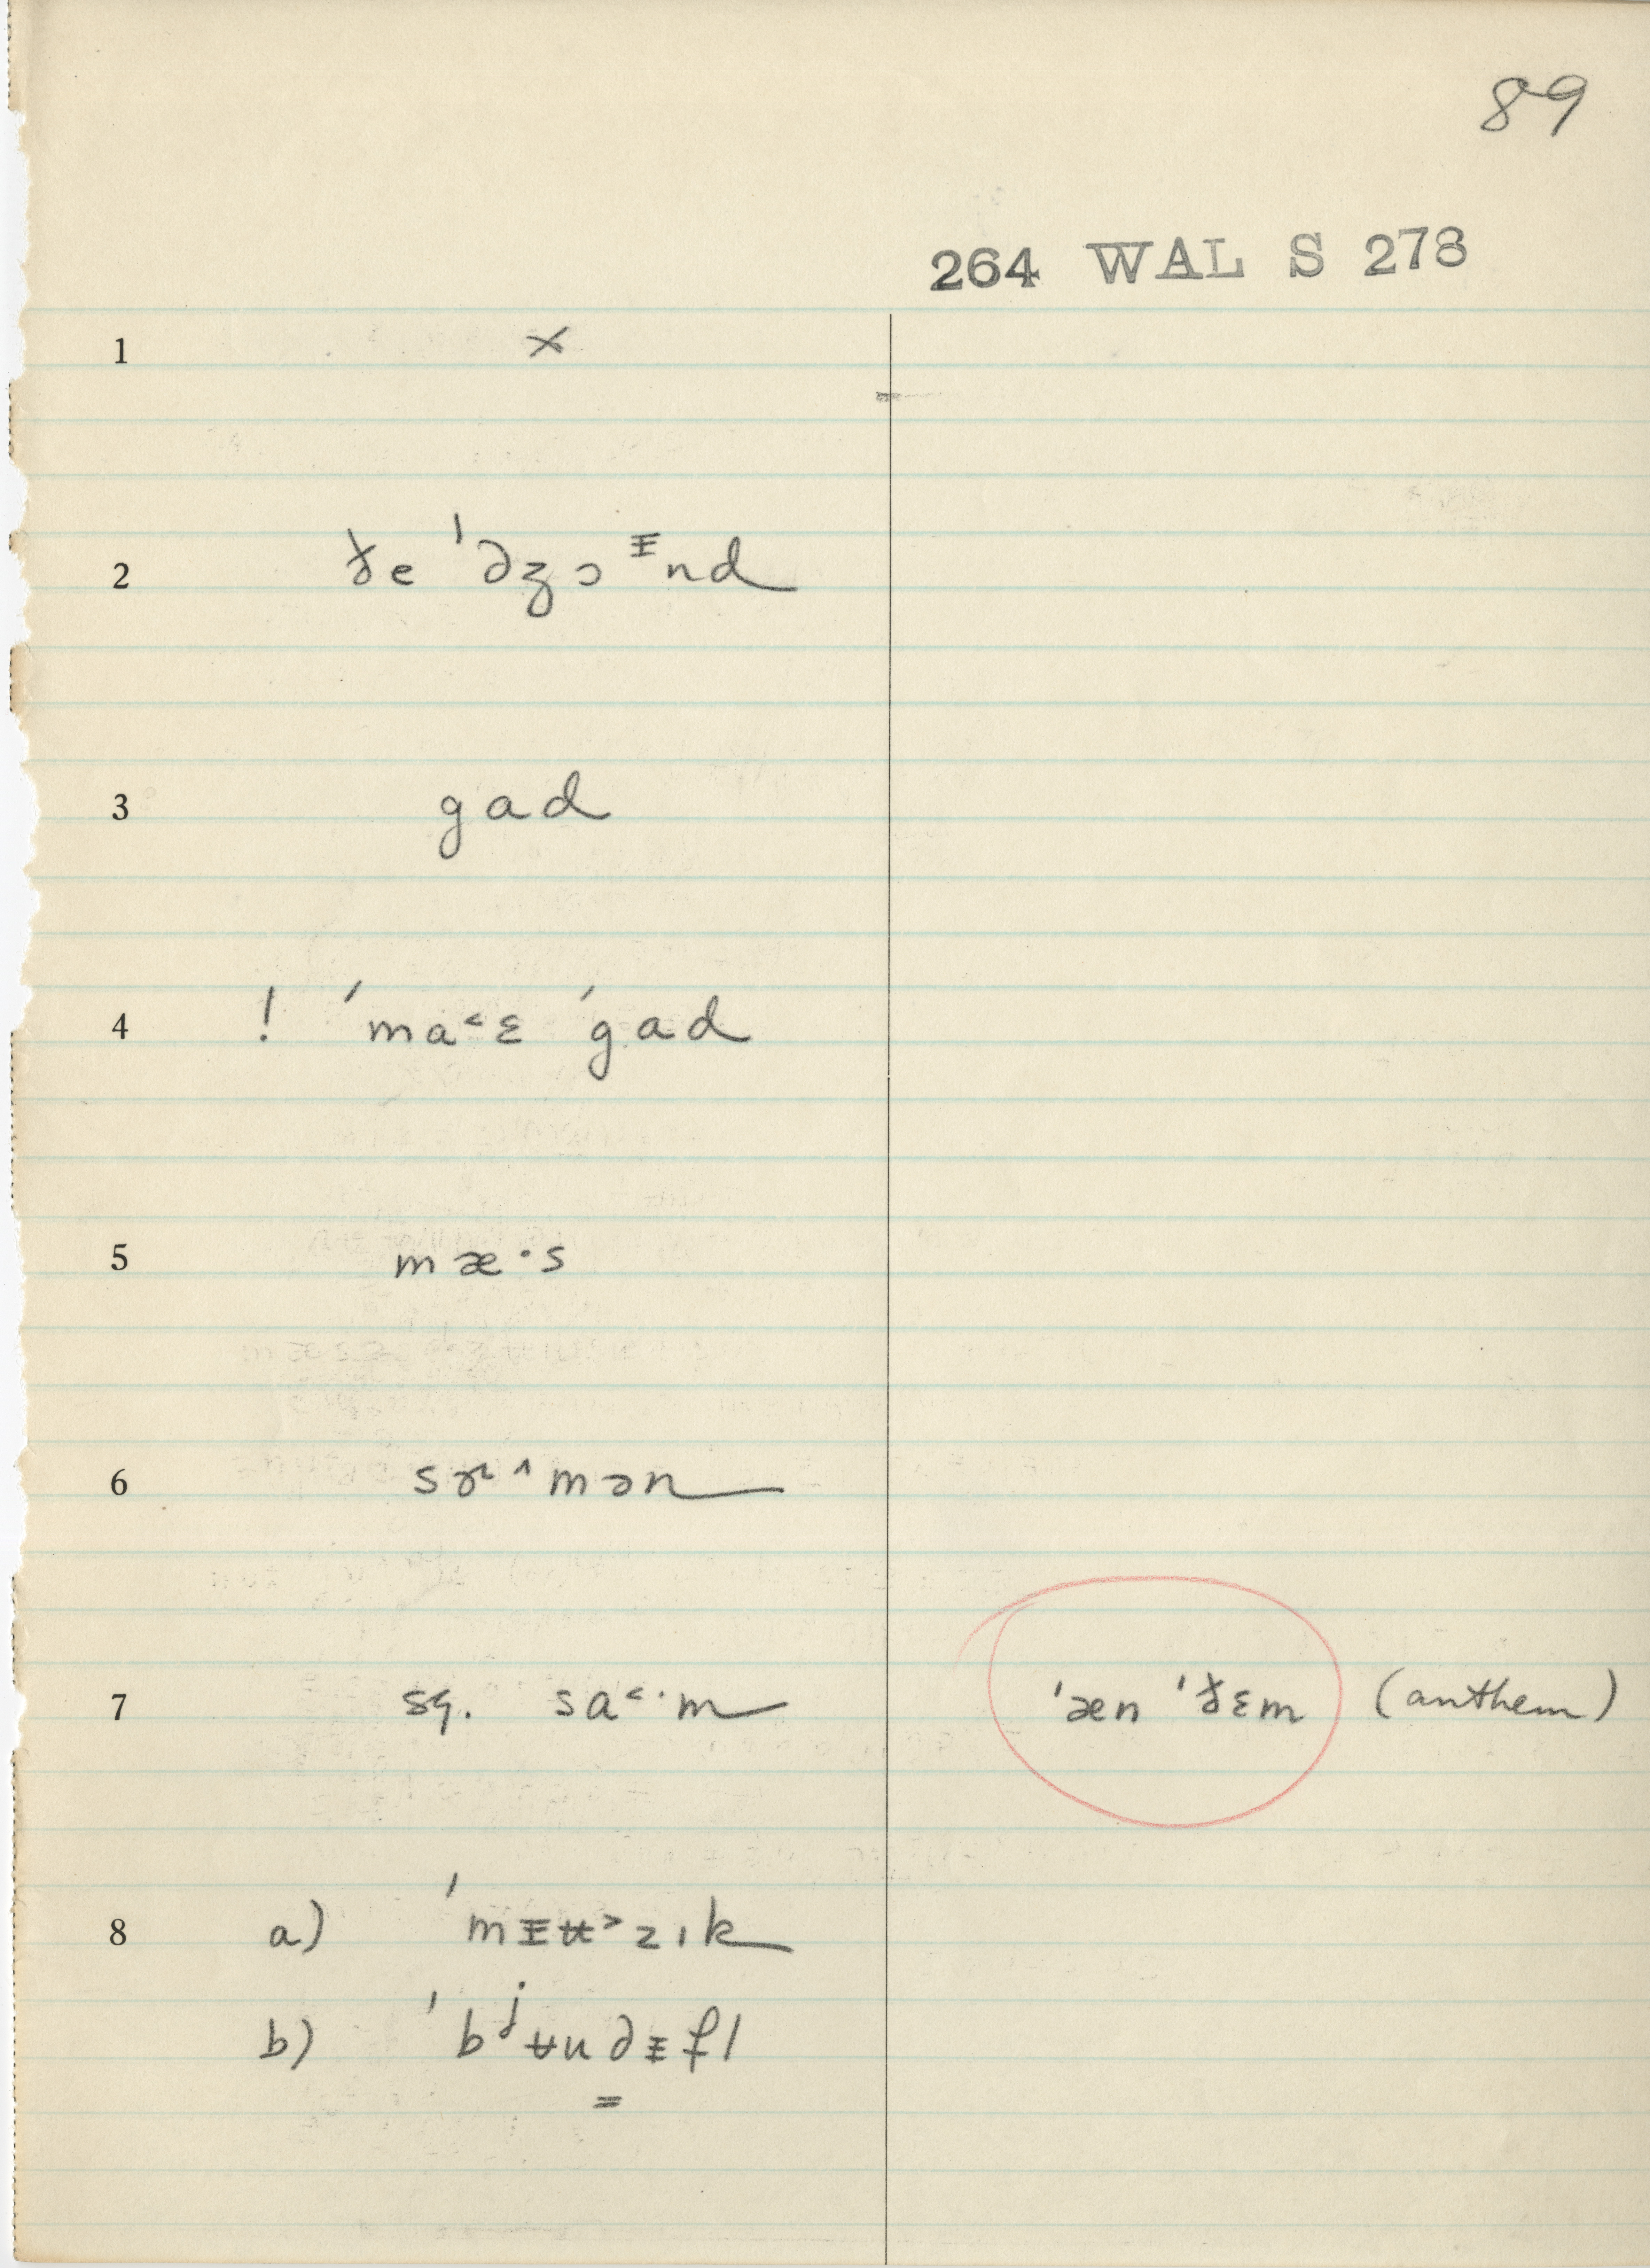 89
264 WAL S 278
1 ×
2 ɣe ˈdʒɔᵻnd
3 gad
4 ! ˈma˂ɛ ˈgad
5 mæ·s
6 sɚ^mən
7 sg. sa˂·m ˈæn ˈɣɛm (anthem)
8 a) ˈmᵻʉ˃zɪk
b) ˈbʲʉudᵻfl